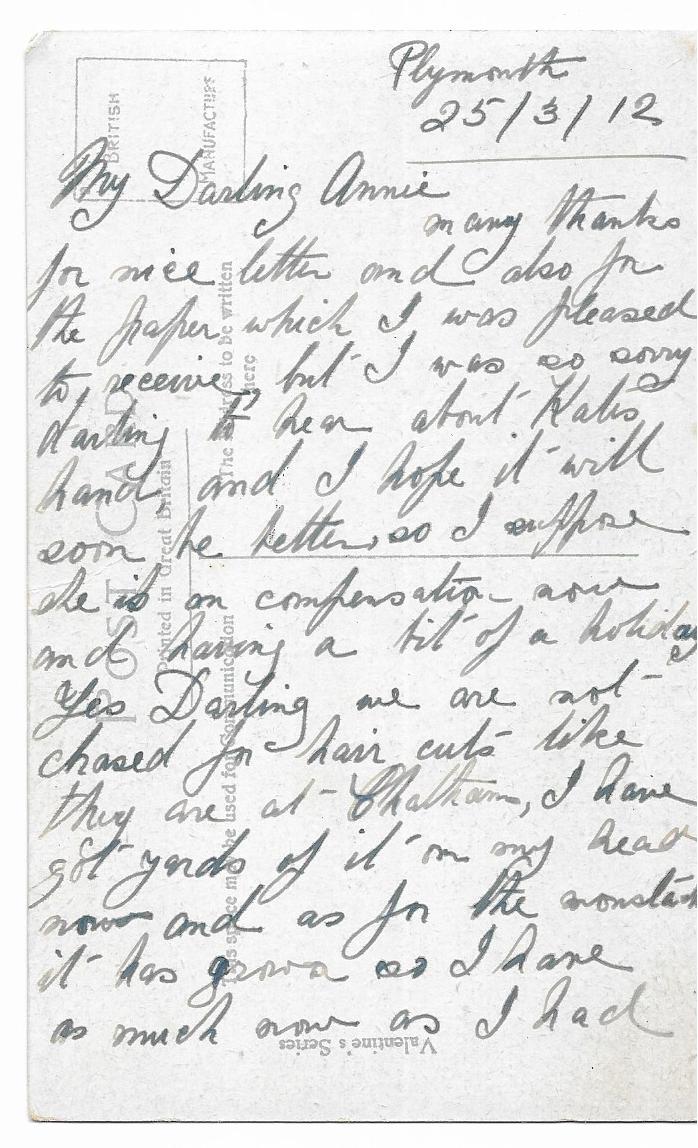 Plymouth
25/3/12
My Darling Annie
many thanks
for nice letter and also for
the paper which I was pleased
to receive, but I was so sorry
darling to hear about Kates
hand, and I hope it will
soon be better, so I suppose
she is on compensation now
and having a bit of a holiday
Yes Darling we are not
chased for hair cuts like
they are at Chatham, I have
got yards of it on my head
now and as for the moustach
it has grown so I have
as much now as I had
BRITISH
MANUFACTURE
POST CARD
Printed in Great Britain
This space may be used for Communication
The address to be written
here
Valentine's Series